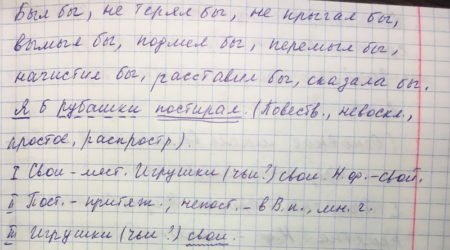 Был бы, не терял бы, не прыгал бы,
вымыл бы, подмел бы, перемыл бы,
начистил бы, расставил бы, сказала бы.
Я б рубашки постирал. (Повеств., невоскл.,
простое, распростр.).
I Свои - мест. Игрушки (чьи?) свои. Н.ф. - свой.
II Пост. - притяж.; непост. - в В.п., мн. ч.
III Игрушки (чьи?) свои.